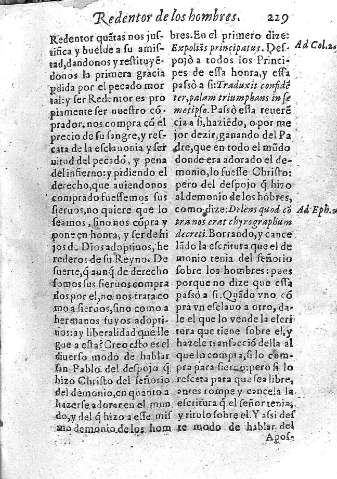 Redentor de los hombres. 229
Redentor quãtas nos jus-
tifica y buelue a su amis-
tad, dandonos y restituyẽ-
donos la primera gracia
pdida por el pecado mor
tal: y ser Redentor es pro
piamente ser nuestro cõ-
prador. nos compra cõ el
precio de su sangre, y res-
cata de la esclauonia y ser
uitud del pecado, y pena
del infierno: y pidiendo el
derecho, que auiendonos
comprado fuessemos sus
sieruos, no quiere que lo
seamos, sino nos cõpra y
pone en honra, y ser de hi
jos d̃ Dios adoptiuos, he
rederos de su Reyno. De
suerte, q̃ aunq̃ de derecho
somos sus sieruos compra
dos por el, no nos trata co
mo a sieruos, sino como a
hermanos suyos adopti-
uos: ay liberalidad que lle
gue a esta? Creo esto es el
diuerso modo de hablar
san Pablo. del despojo q̃
hizo Christo del señorio
del demonio, en quanto a
hazerse adorar en el mun
do, y del q̃ hizo a esse mis
mo demonio de los hom
bres. En el primero dize:
Expolias principatus. Des-
pojò a todos los Princi-
pes de essa honra, y essa
passò a si: Traduxit confidẽ
ter, palam triumphans in se
metipso. Passò essa reuerẽ
cia a si, haziẽdo, o por me
jor dezir, ganando del Pa
dre, que en todo el mũdo
donde era adorado el de-
monio, lo fuesse Christo:
pero del despojo q̃ hizo
al demonio de los hõbres,
como, dize: Delens quod cõ
tra nos erat chyrographum
decreti. Borrando, y cance
lãdo la escritura que el de
monio tenia del señorio
sobre los hombres: pues
porque no dize que essa
passò a si: Quãdo vno cõ
pra vn esclauo a otro, da-
le el que lo vende la escri
tura que tiene sobre el, y
hazele transfacciõ della al
que lo compra, si lo com-
pra para sieruo: pero si lo
rescata para que sea libre,
antes rompe y cancela la
escritura q̃ el señor tenia,
y titulo sobre el. Y assi des
te modo de hablar del
Apos-
Ad Col. 2.
Ad Eph.